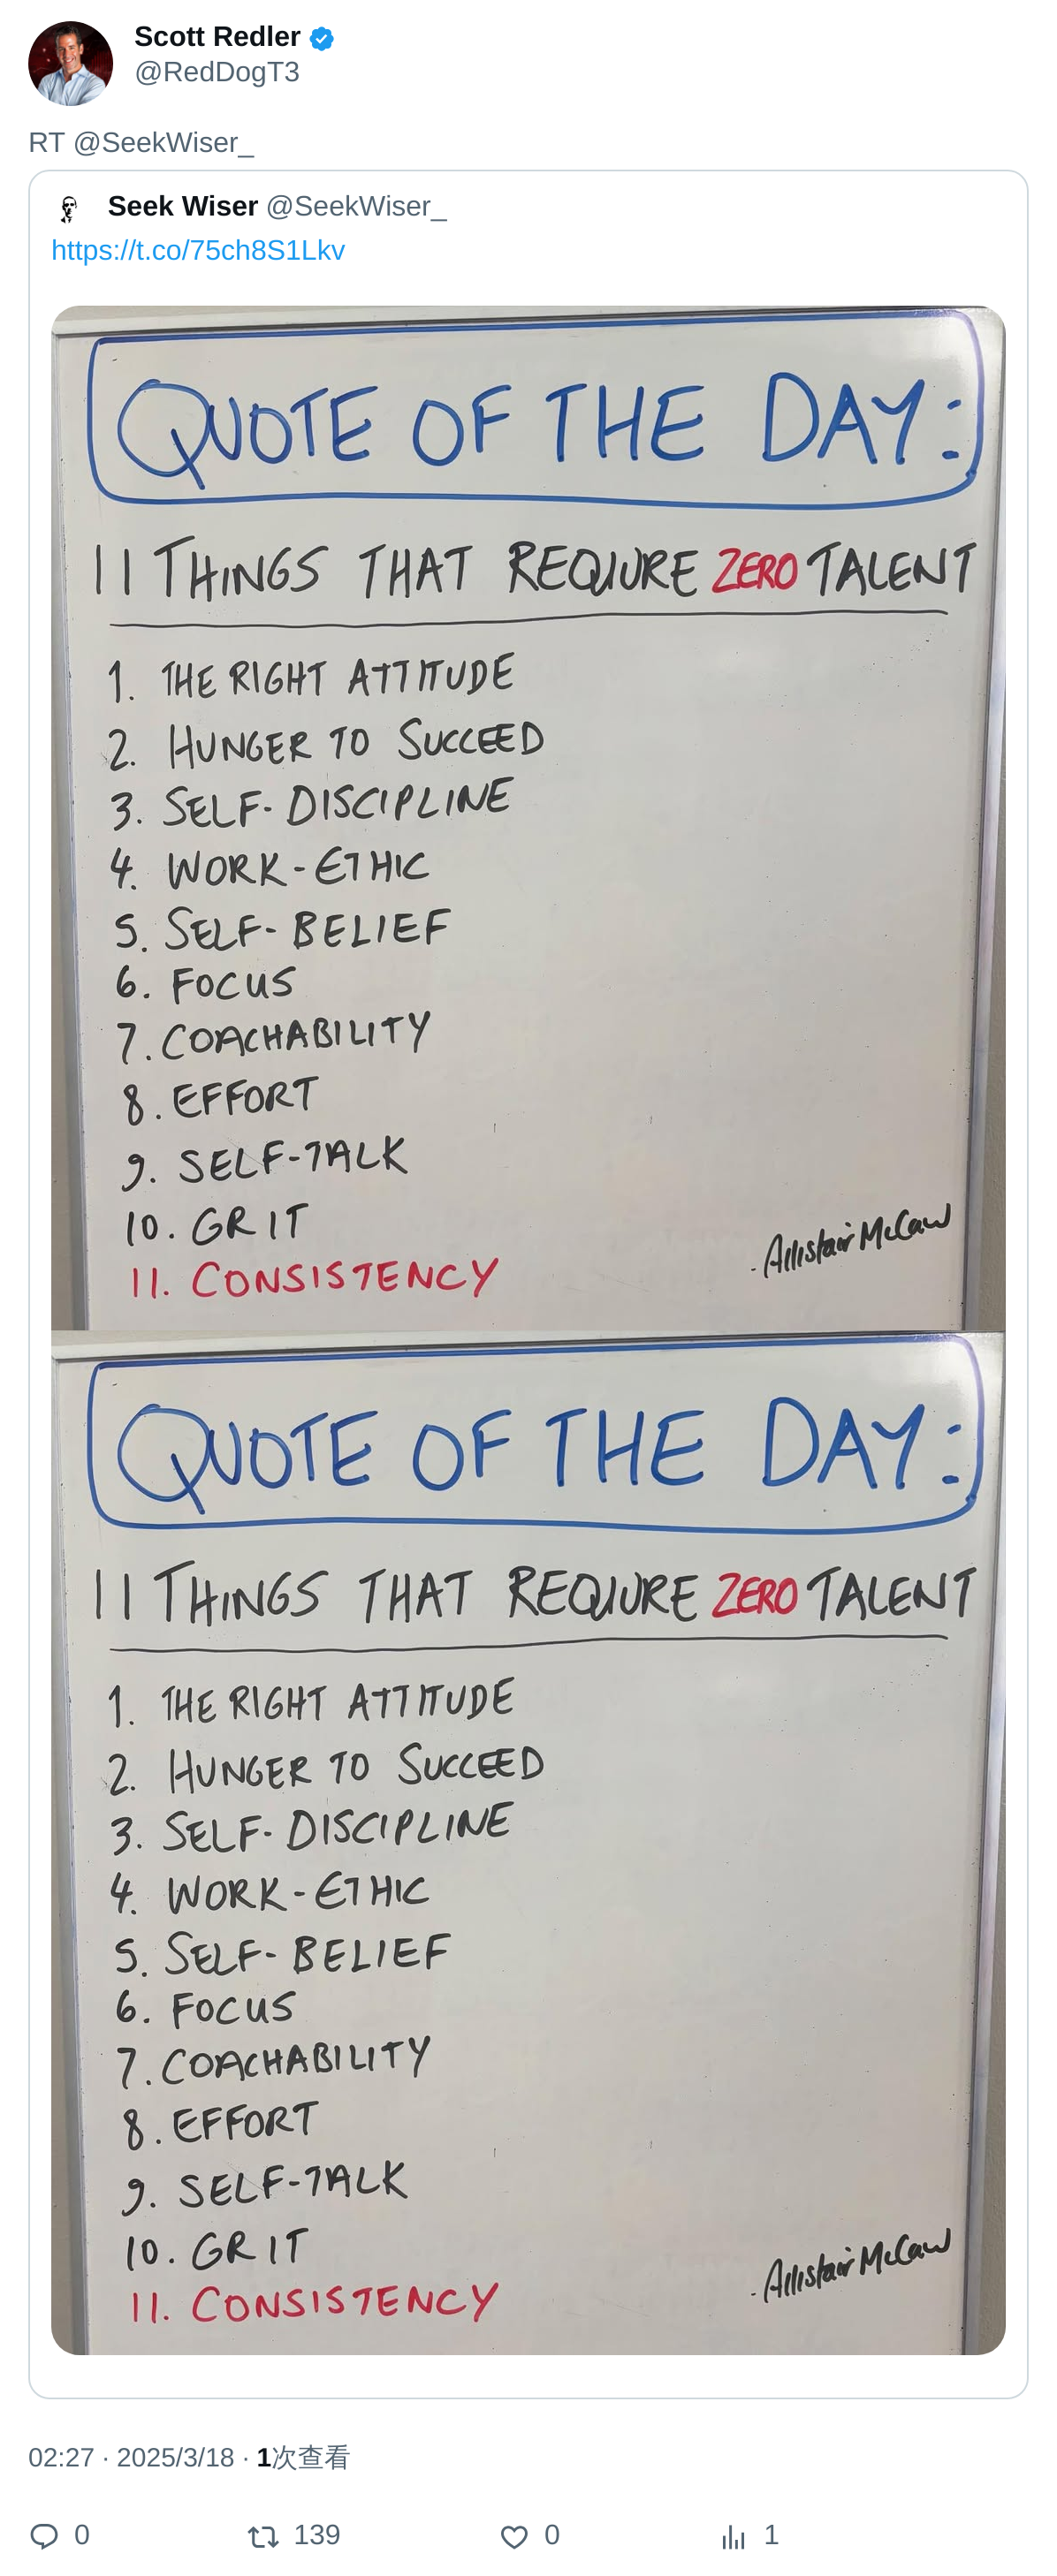 Scott Redler
@RedDogT3
RT @SeekWiser_
Seek Wiser @SeekWiser_
https://t.co/75ch8S1Lkv
QUOTE OF THE DAY:
11 THINGS THAT REQUIURE ZERO TALENT
1. THE RIGHT ATTITUDE
2. HUNGER TO SUCCEED
3. SELF-DISCIPLINE
4. WORK-ETHIC
5. SELF-BELIEF
6. FOCUS
7. COACHABILITY
8. EFFORT
9. SELF-TALK
10. GRIT
11. CONSISTENCY
- Allistair McCaw
QUOTE OF THE DAY:
11 THINGS THAT REQUIURE ZERO TALENT
1. THE RIGHT ATTITUDE
2. HUNGER TO SUCCEED
3. SELF-DISCIPLINE
4. WORK-ETHIC
5. SELF-BELIEF
6. FOCUS
7. COACHABILITY
8. EFFORT
9. SELF-TALK
10. GRIT
11. CONSISTENCY
- Allistair McCaw
02:27 · 2025/3/18 · 1次查看
0 139 0 1